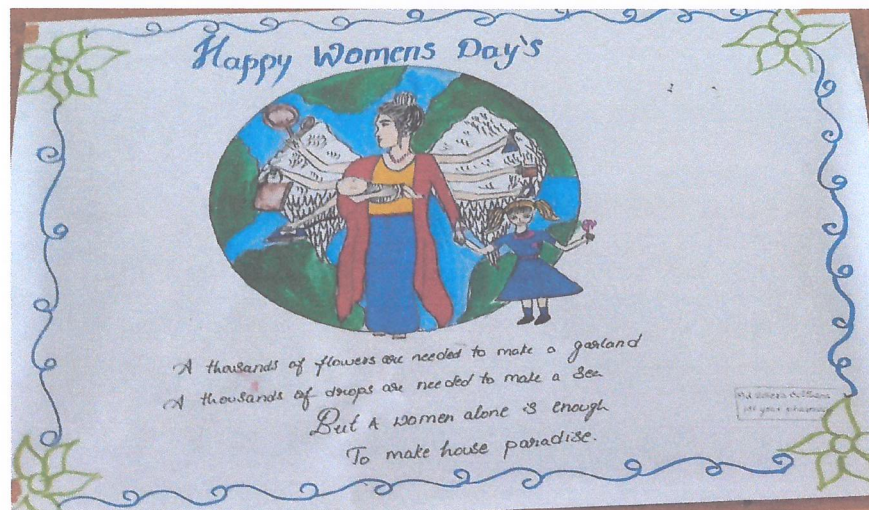 Happy Womens Day's
A thousands of flowers are needed to make a garland
A thousands of drops are needed to make a sea
But A women alone is enough
To make house paradise.